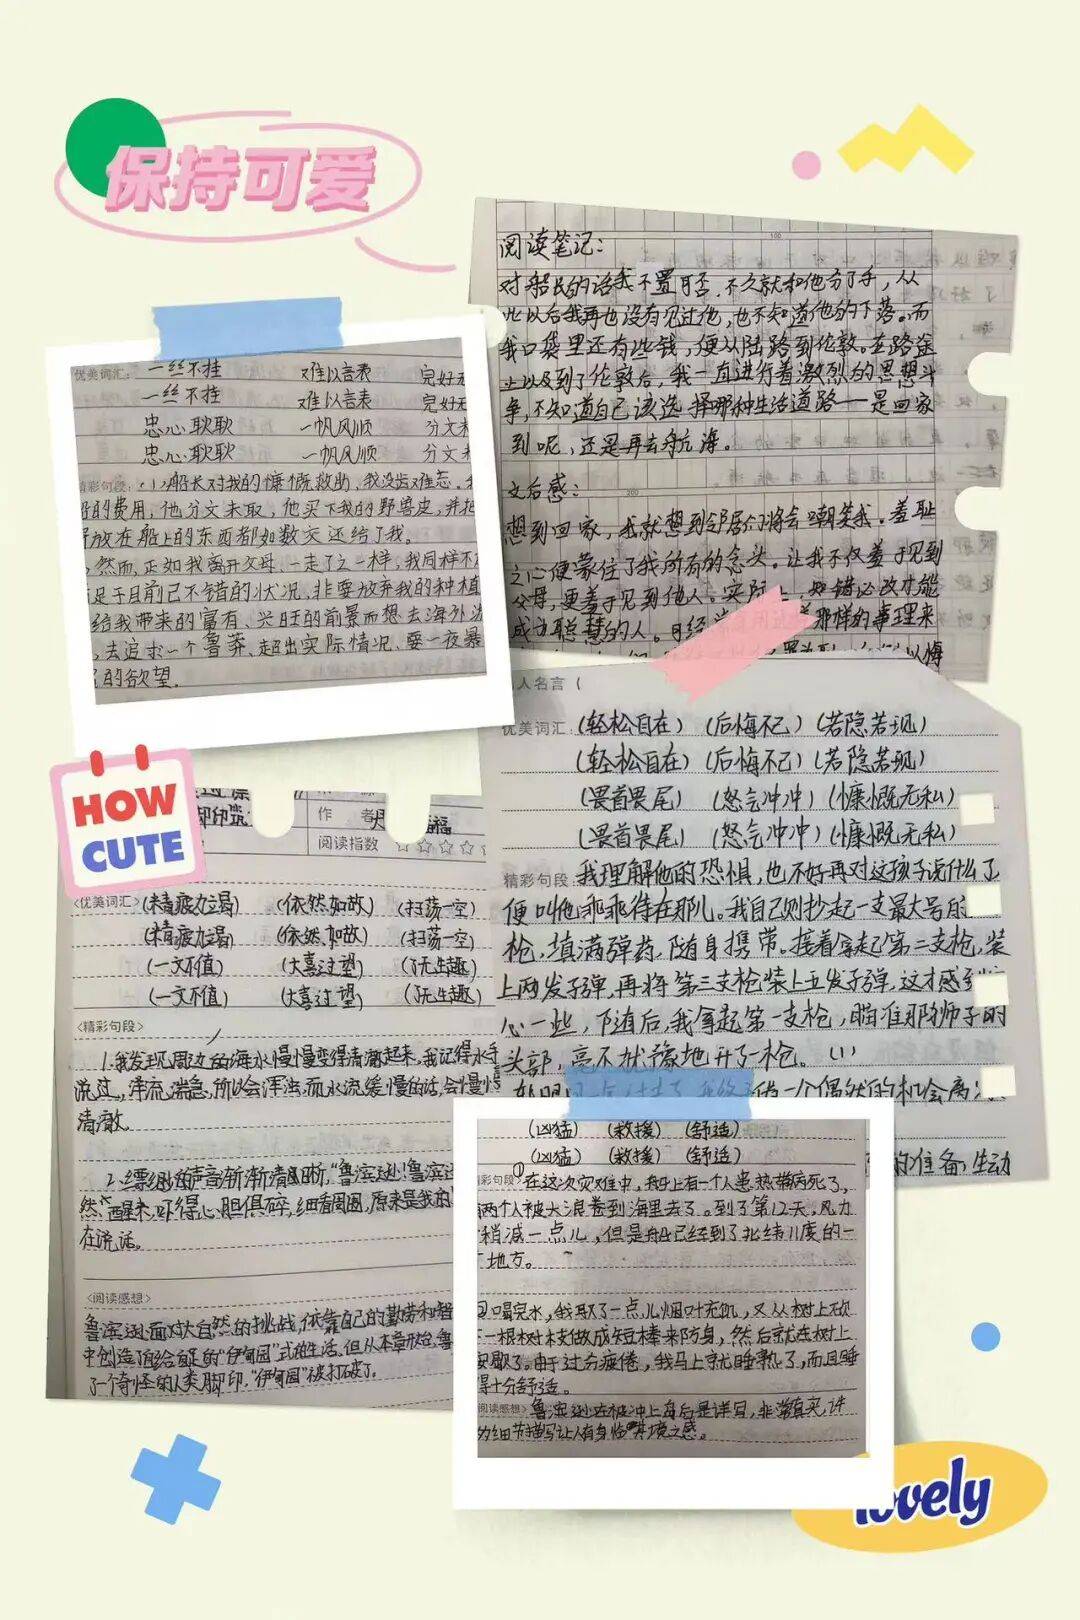 保持可爱
阅读笔记：
对船长的话我不置可否，不久就和他分了手，从
此以后我再也没有见过他，也不知道他的下落。而
我口袋里还有些钱，便从陆路到伦敦。在路途
上以及到了伦敦后，我一直进行着激烈的思想斗
争，不知道自己该选择哪种生活道路——是回家
到呢，还是再去航海。
文后感：
想到回家，我就想到邻居们将会嘲笑我。羞耻
之心便蒙住了我所有的念头。让我不仅羞于见到
父母，更羞于见到他人。实际上，知错必改才能
成为聪慧的人。
那样的事理来
以悔
优美词汇：一丝不挂 难以言表 完好无
一丝不挂 难以言表 完好无
忠心耿耿 一帆风顺 分文未
忠心耿耿 一帆风顺 分文未
精彩句段：(1)船长对我的慷慨救助，我没齿难忘。
船的费用，他分文未取，他买下我的野兽皮，并把
存放在船上的东西都如数交还给了我。
然而，正如我离开父母，一走了之一样，我同样不
足于目前已不错的状况，非要放弃我的种植
给我带来的富有、兴旺的前景而想去海外
，去追求一个鲁莽、超出实际情况、要一夜暴
的欲望。
人名言（
优美词汇：(轻松自在) (后悔不已) (若隐若现)
(轻松自在) (后悔不已) (若隐若现)
(畏首畏尾) (怒气冲冲) (慷慨无私)
(畏首畏尾) (怒气冲冲) (慷慨无私)
精彩句段：我理解他的恐惧，也不好再对这孩子说什么了
便叫他乖乖待在那儿。我自己则抄起一支最大号的
枪，填满弹药，随身携带。接着拿起第二支枪，装
上两发子弹，再将第三支枪装上五发子弹，这才感到
心一些，随后，我拿起第一支枪，瞄准那狮子的
头部，毫不犹豫地开了一枪。(1)
一个偶然的机会离
的准备，生动
HOW
CUTE
作者
福
阅读指数 ☆☆☆☆☆
<优美词汇>(精疲力竭) (依然如故) (扫荡一空)
(精疲力竭) (依然如故) (扫荡一空)
(一文不值) (大喜过望) (了无生趣)
(一文不值) (大喜过望) (了无生趣)
<精彩句段>
1.我发现周边的海水慢慢变得清澈起来，我记得水手
流过，洋流湍急，所以会浑浊，而水流缓慢的话，会慢慢
清澈。
2.缥缈的声音渐渐清晰，“鲁滨逊！鲁滨逊
然醒来，吓得心胆俱碎，细看周围，原来是我的
在说话。
<阅读感想>
鲁滨逊面对大自然的挑战，依靠自己的勤劳和智
中创造了自给自足的“伊甸园”式的生活。但从本章开始，鲁
了一个奇怪的人类脚印，“伊甸园”被打破了。
(凶猛) (救援) (舒适)
(凶猛) (救援) (舒适)
精彩句段①在这次灾难中，船上有一个人患热带病死了，
两个人被大浪卷到海里去了。到了第12天，风力
稍减一点儿，但是船已经到了北纬11度的一
地方。
喝完水，我取了一点儿烟叶充饥，又从树上砍
一根树枝做成短棒来防身，然后就在树上
安歇了。由于过分疲倦，我马上就睡熟了，而且睡
得十分舒适。
阅读感想>鲁滨逊在被冲上岸后是详写，非常真实，详
的细节描写让人有身临其境之感。
lovely